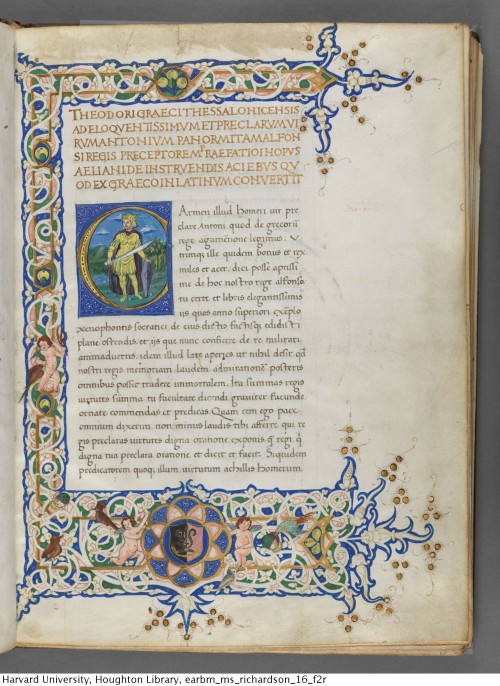 THEODORI GRAECI THESSALONICENSIS
AD ELOQVENTISSIMVM ET PRECLARVM VI
RVM ANTONIVM PANORMITAM ALFON
SI REGIS PRECEPTOREM PRAEFATIO IN OPVS
AELIANI DE INSTRVENDIS ACIEBVS QV
OD EX GRAECO IN LATINVM CONVERTIT
CArmen illud Homeri uir pre
clare Antoni quod de grecorum
rege agamenone legimus. V
trunque ille quidem bonus et rex
miles et acer. dici posse aptissi
me de hoc nostro rege alfonso
tu certe et libris elegantissimis
iis quos anno superiori exemplo
xenophontis socratici de eius dictis factisque edidisti
plane ostendis. et iis que nunc conficere de re militari
animaduertis. idem illud late aperies. ut nihil desit quod
nostri regis memoriam laudem admirationem posteris
omnibus possit tradere immortalem. Ita summas regis
uirtutes summa tu facultate dicendi grauiter facunde
ornate commendas et predicas. Quam rem ego pace
omnium dixerim. non minus laudis tibi afferre qui re
gis preclaras uirtutes digna oratione exponis quam regi. qui
digna tua preclara oratione et dicit et facit. Siquidem
predicatorem quoque illum uirtutum achillis homerum
Harvard University, Houghton Library, earbm_ms_richardson_16_f2r